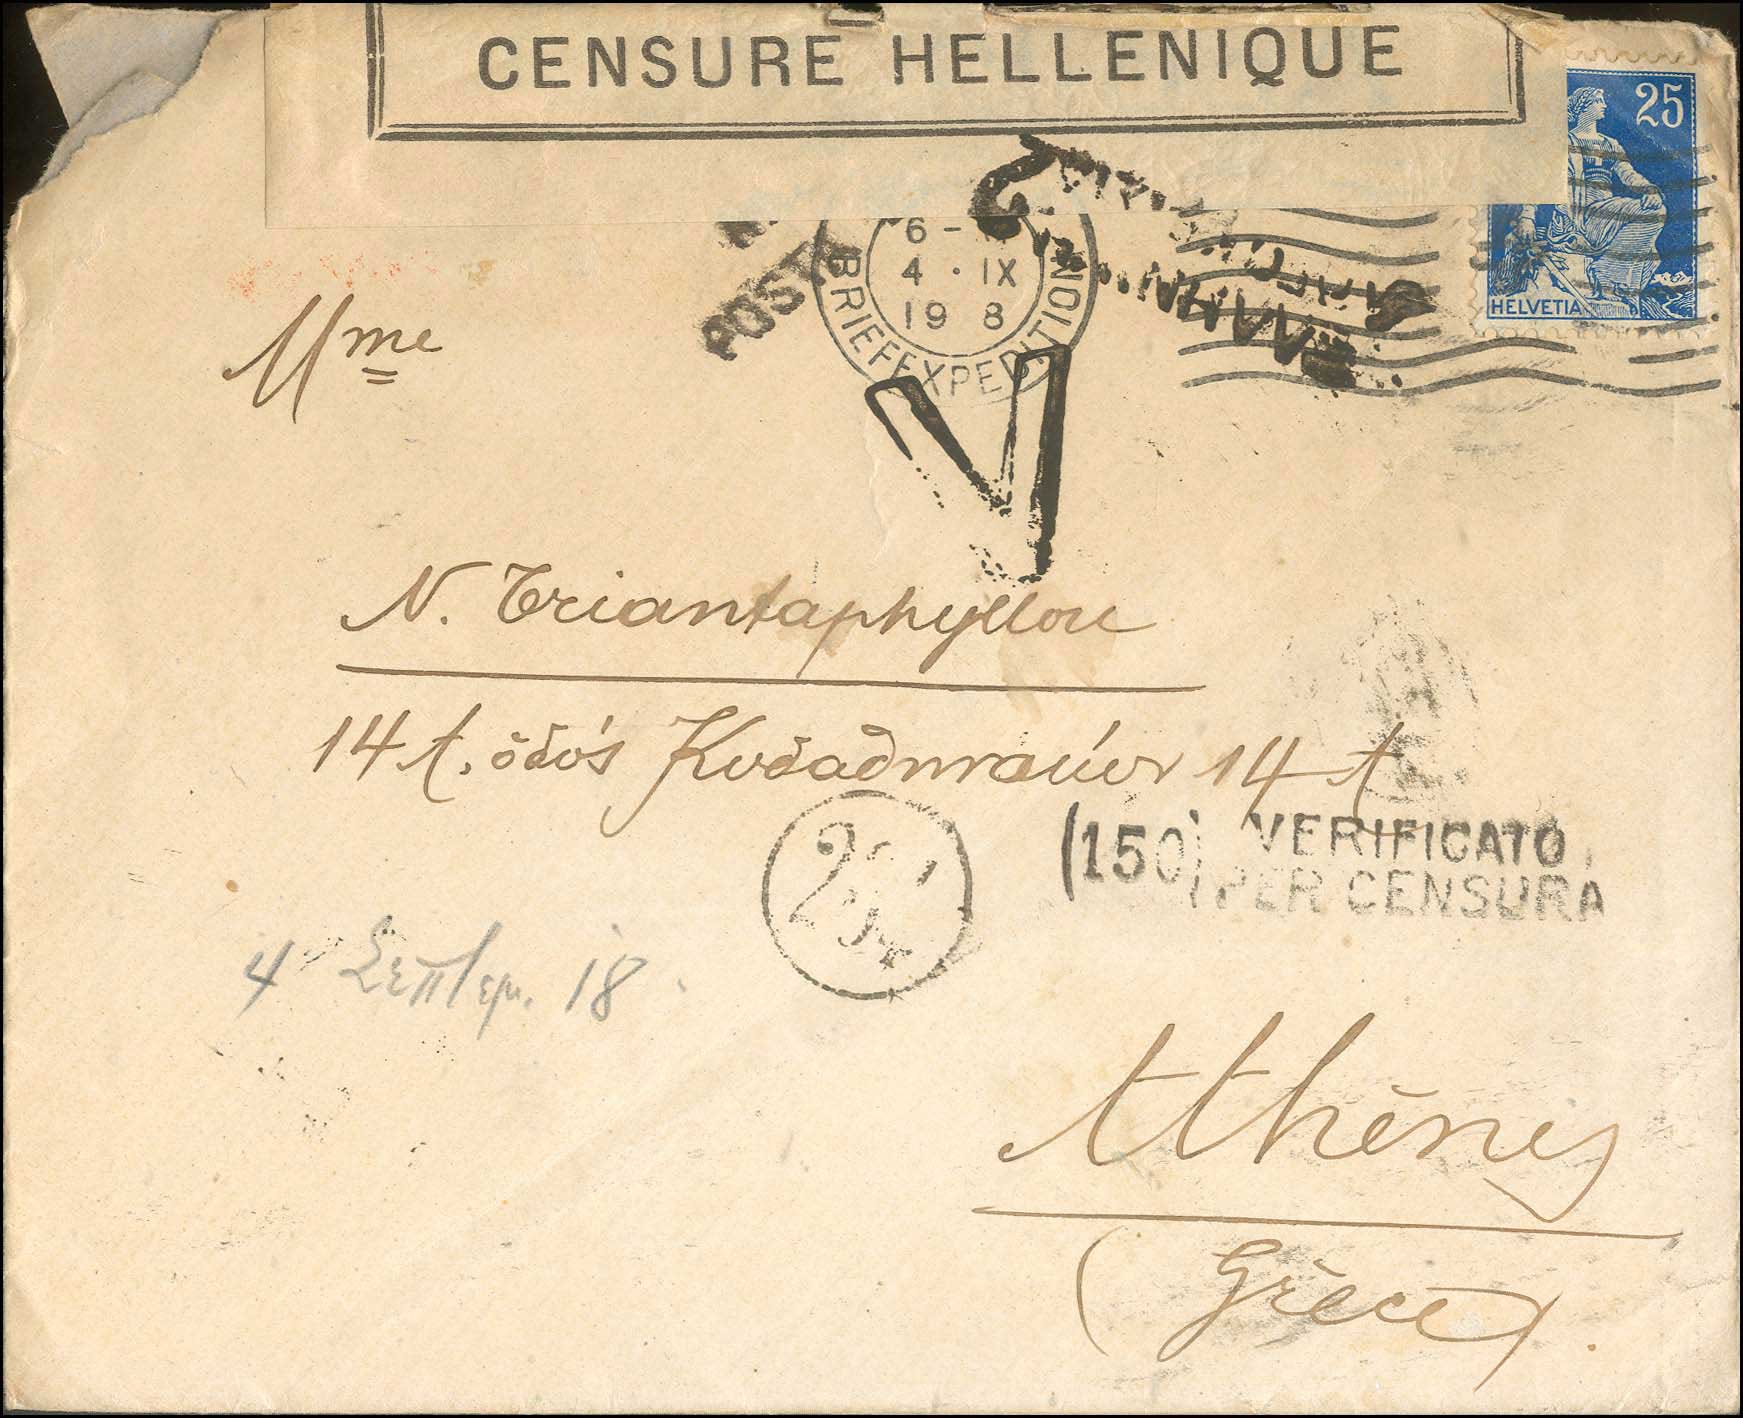 CENSURE HELLENIQUE
25
HELVETIA
6 -
4 . IX
19 8
BRIEFEXPEDITION
POST
Mme
N. Triantaphyllou
14 A. ὁδός 14 A
(150) VERIFICATO
PER CENSURA
4 Σεπτεμ. 18
Athènes
(Grèce).